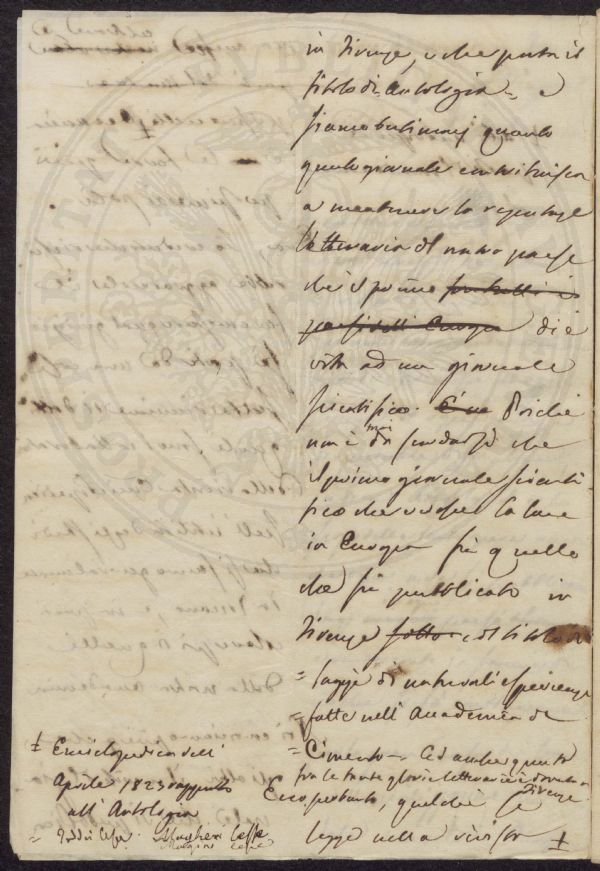 in Firenze, e che porta il
titolo di = Antologia =, e
siamo buoni quanto
questo giornale contribuisca
a mantenere la reputaz.e
letteraria del nostro paese
che è il primo fra tutti i
paesi dell' Europa diè
vita ad un giornale
scientifico. È un Poichè
non è mai da scordarsi che
il primo giornale scienti-
fico che vedesse la luce
in Europa fù quello
che fù pubblicato in
Firenze sotto col titolo di
= Saggi di naturali esperienze
= fatte nell' Accademia del
= Cimento = Ed anche questo
fra le tante glorie letterarie è dovuto a Firenze
Ecco pertanto, quel che si
legge nella rivista ‡
‡ Enciclopedica dell'
Aprile 1823 rapporto
all' Antologia
=